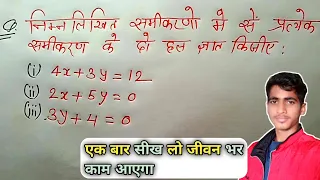 Q. निम्न लिखित समीकरणो मे सें प्रत्येक
समीकरण के दो हल ज्ञात किजीए :
(i) 4x+3y=12
(ii) 2x+5y=0
(iii) 3y+4=0
एक बार सीख लो जीवन भर
काम आएगा